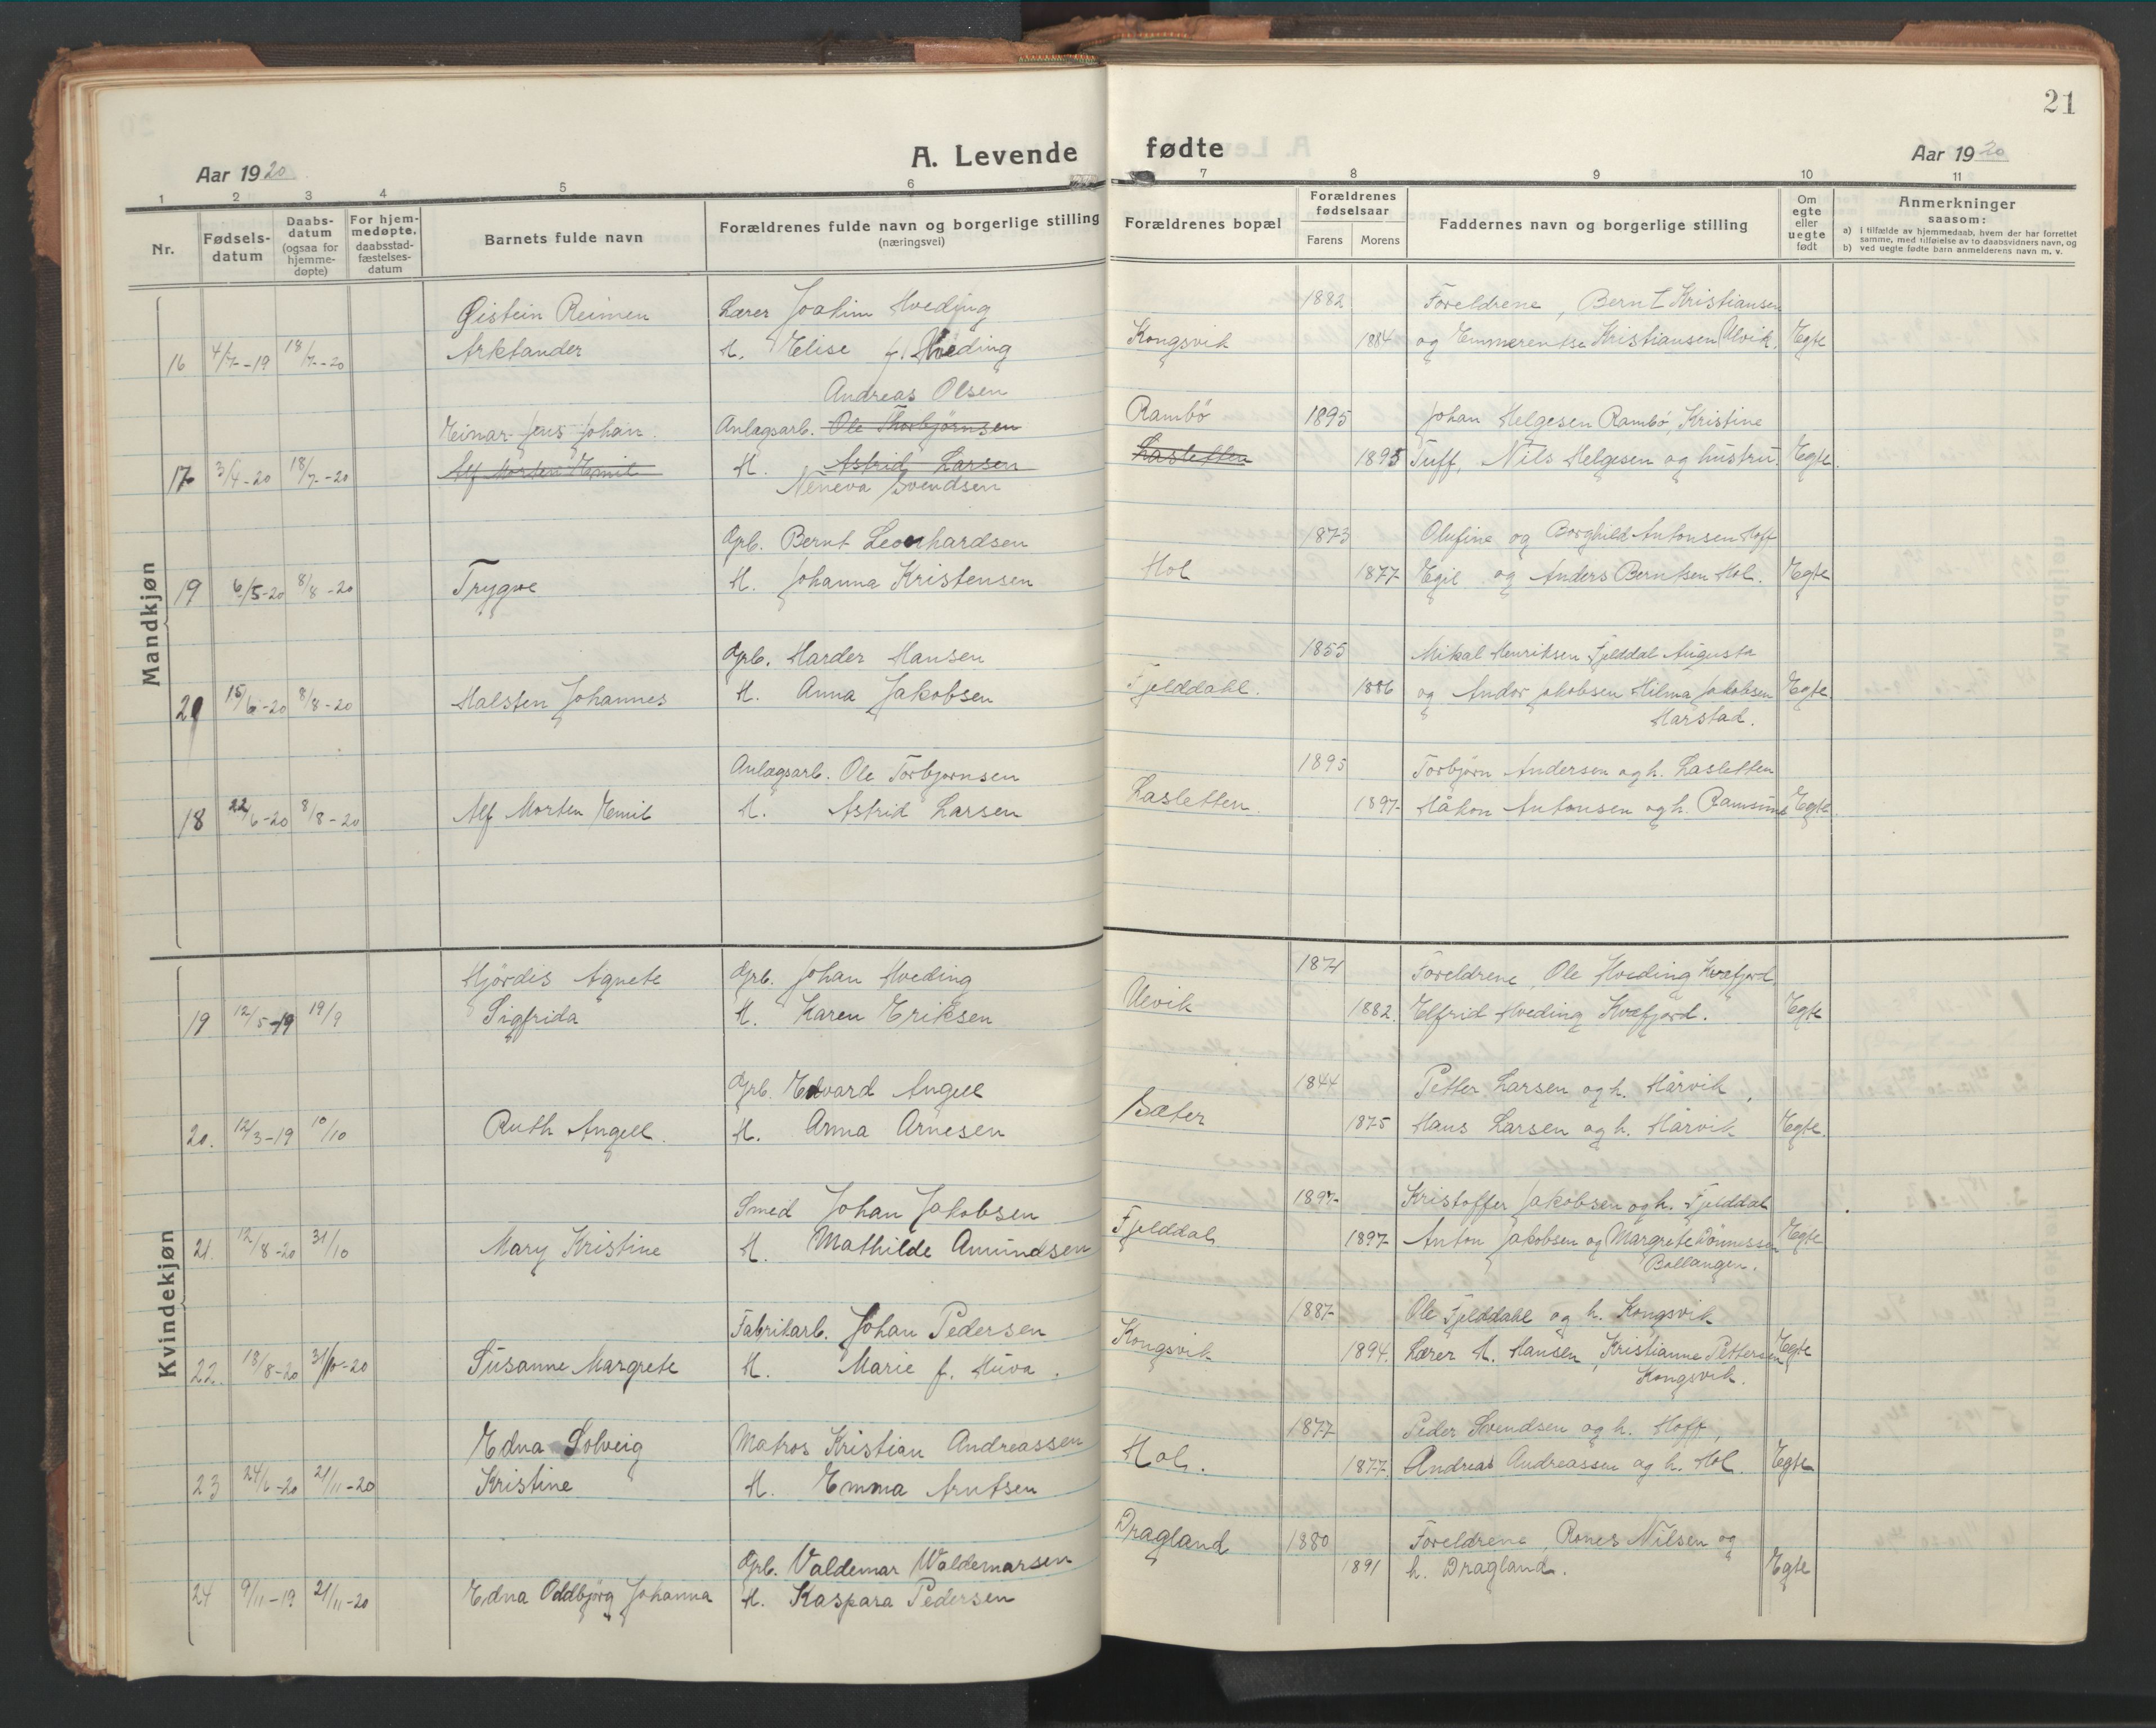 21
A. Levende fødte
Aar 1920
Aar 1920
1 2 3 4 5 6 7 8 9 10 11
Nr.
Fødselsdatum
Daabsdatum (ogsaa for hjemmedøpte)
For hjemmedøpte. daabsstadfæstelsesdatum
Barnets fulde navn
Forældrenes fulde navn og borgerlige stilling (næringsvei)
Forældrenes bopæl
Forældrenes fødselsaar
Farens Morens
Faddernes navn og borgerlige stilling
Om egte eller uegte født
Anmerkninger saasom:
a) i tilfælde av hjemmedaab, hvem der har forrettet samme, med tilføielse av to daabsvidners navn, og
b) ved uegte fødte barn anmelderens navn m. v.
Mandkjøn
Øistein Reimen Lærer Joakim Hveding 1882 Foreldrene, Bernt Kristiansen
16 4/7-19 18/7-20 Arktander H. Elise f. Hveding Kongsvik 1884 og Emmerentse Kristiansen Ulvik. Egte
Andreas Olsen
Einar Jens Johan Anlagsarb. Ole Thorbjørnsen Rambø 1895 Johan Helgesen Rambø, Kristine
17 3/4-20 18/7-20 Alf Morten Emil H. Astrid Larsen Lasletten 1895 Tuff, Nils Helgesen og hustru. Egte.
Neneva Svendsen
Gpb. Bernt Leonhardsen 1873 Olufine og Borghild Antonsen Hoff
19 6/5-20 8/8-20 Trygve H. Johanna Kristensen Hol 1877 Egil og Anders Berntsen Hol. Egte
Gpb. Harder Hansen 1855 Mikal Henriksen Fjelddal Augusta
20 15/6-20 8/8-20 Halsten Johannes H. Anna Jakobsen Fjelddahl. 1886 og Andor Jakobsen Hilma Jakobsen Egte.
Harstad.
Anlagsarb. Ole Torbjørnsen 1895 Torbjørn Andersen og h. Lasletten
18 22/6-20 8/8-20 Alf Morten Emil H. Astrid Larsen Lasletten 1897 Håkon Antonsen og h. Ramsund Egte.
Kvindekjøn
Hjørdis Agnete Gpb. Johan Hveding 1871 Foreldrene, Ole Hveding Kvæfjord.
19 12/5-19 19/9 Sigfrida H. Karen Eriksen Ulvik 1882. Elfrid Hveding Kvæfjord. Egte
Gpb. Edvard Angell 1844 Petter Larsen og h. Hårvik,
20. 12/3-19 10/10 Ruth Angell. H. Anna Arnesen Sæter 1875 Hans Larsen og h. Hårvik Egte.
Smed Johan Jakobsen 1897 Kristoffer Jakobsen og h. Fjelddal
21. 12/8-20 31/10 Mary Kristine H. Mathilde Amundsen Fjelddal 1897 Anton Jakobsen og Margrete Egte
Ballangen.
Fabrikarb. Johan Pedersen 1887 Ole Fjelddahl og h. Kongsvik
22. 18/8-20 31/10-20 Susanne Margrete H. Marie f. Huva. Kongsvik 1894. Lærer H. Hansen, Kristianne Pettersen Egte
Kongsvik.
Edna Solveig Matros Kristian Andreassen 1877 Peder Svendsen og h. Hoff,
23 24/6-20 21/11-20 Kristine H. Emma Arntsen Hol. 1877. Andreas Andreassen og h. Hol. Egte
Gpb. Valdemar Waldemarsen Dragland 1880 Foreldrene, Rones Nilsen og
24 9/11-19 21/11-20 Edna Oddbjørg Johanna H. Kaspara Pedersen 1891 h. Dragland. Egte